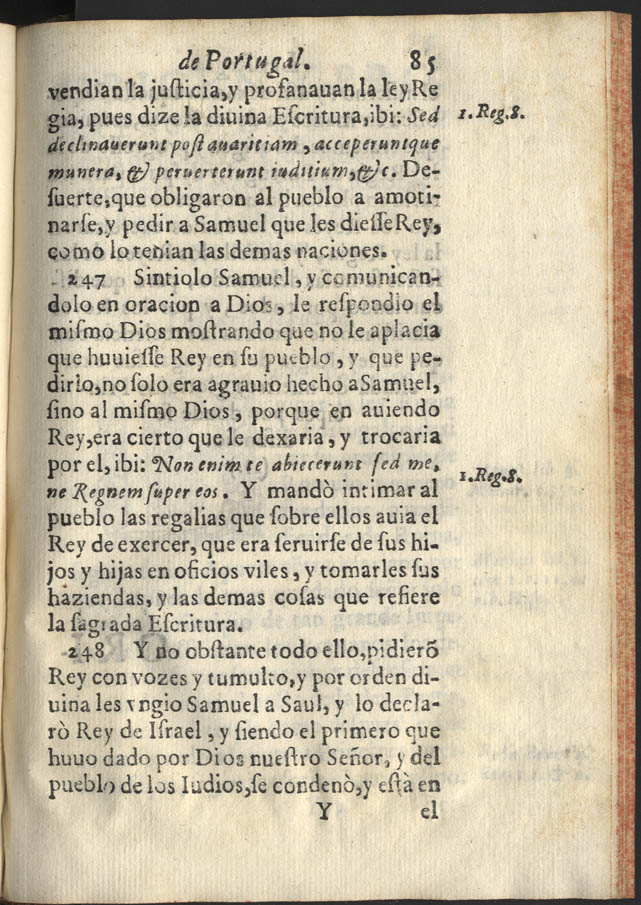 de Portugal. 85
vendian la juſticia, y profanauan la ley Re
gia, pues dize la diuina Eſcritura, ibi: Sed
1. Reg. 8.
declinauerunt poſt auaritiam, acceperuntque
munera, & peruerterunt iuditium, &c. De-
ſuerte, que obligaron al pueblo a amoti-
narſe, y pedir a Samuel que les dieſſe Rey,
como lo tenian las demas naciones.
247 Sintiolo Samuel, y comunican-
dolo en oracion a Dios, le reſpondio el
miſmo Dios moſtrando que no le aplacia
que huuieſſe Rey en ſu pueblo, y que pe-
dirlo, no ſolo era agrauio hecho a Samuel,
ſino al miſmo Dios, porque en auiendo
Rey, era cierto que le dexaria, y trocaria
por el, ibi: Non enim te abiecerunt ſed me,
1. Reg. 8.
ne Regnem ſuper eos. Y mandò intimar al
pueblo las regalias que ſobre ellos auia el
Rey de exercer, que era ſeruirſe de ſus hi-
jos y hijas en oficios viles, y tomarles ſus
haziendas, y las demas coſas que refiere
la ſagrada Eſcritura.
248 Y no obſtante todo ello, pidierõ
Rey con vozes y tumulto, y por orden di-
uina les vngio Samuel a Saul, y lo decla-
rò Rey de Iſrael, y ſiendo el primero que
huuo dado por Dios nueſtro Señor, y del
pueblo de los Iudios, ſe condenò, y eſtà en
Y el